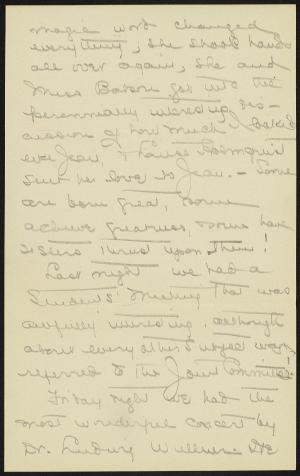 magic word changed
everything; she shook hands
all over again, she and
Miss Batson got into the
perennially interesting dis-
cussion of how much I looked
like Jean, & Louise Holmquist
sent her love to Jean. - Some
are born great, some
achieve greatness, some have
sisters thrust upon them!
Last night we had a
Students' Meeting that was
awfully interesting, although
about every other subject was
referred to the Joint Committee!
Friday night we had the
most wonderful concert by
Dr. Ludwig Wüllner. He